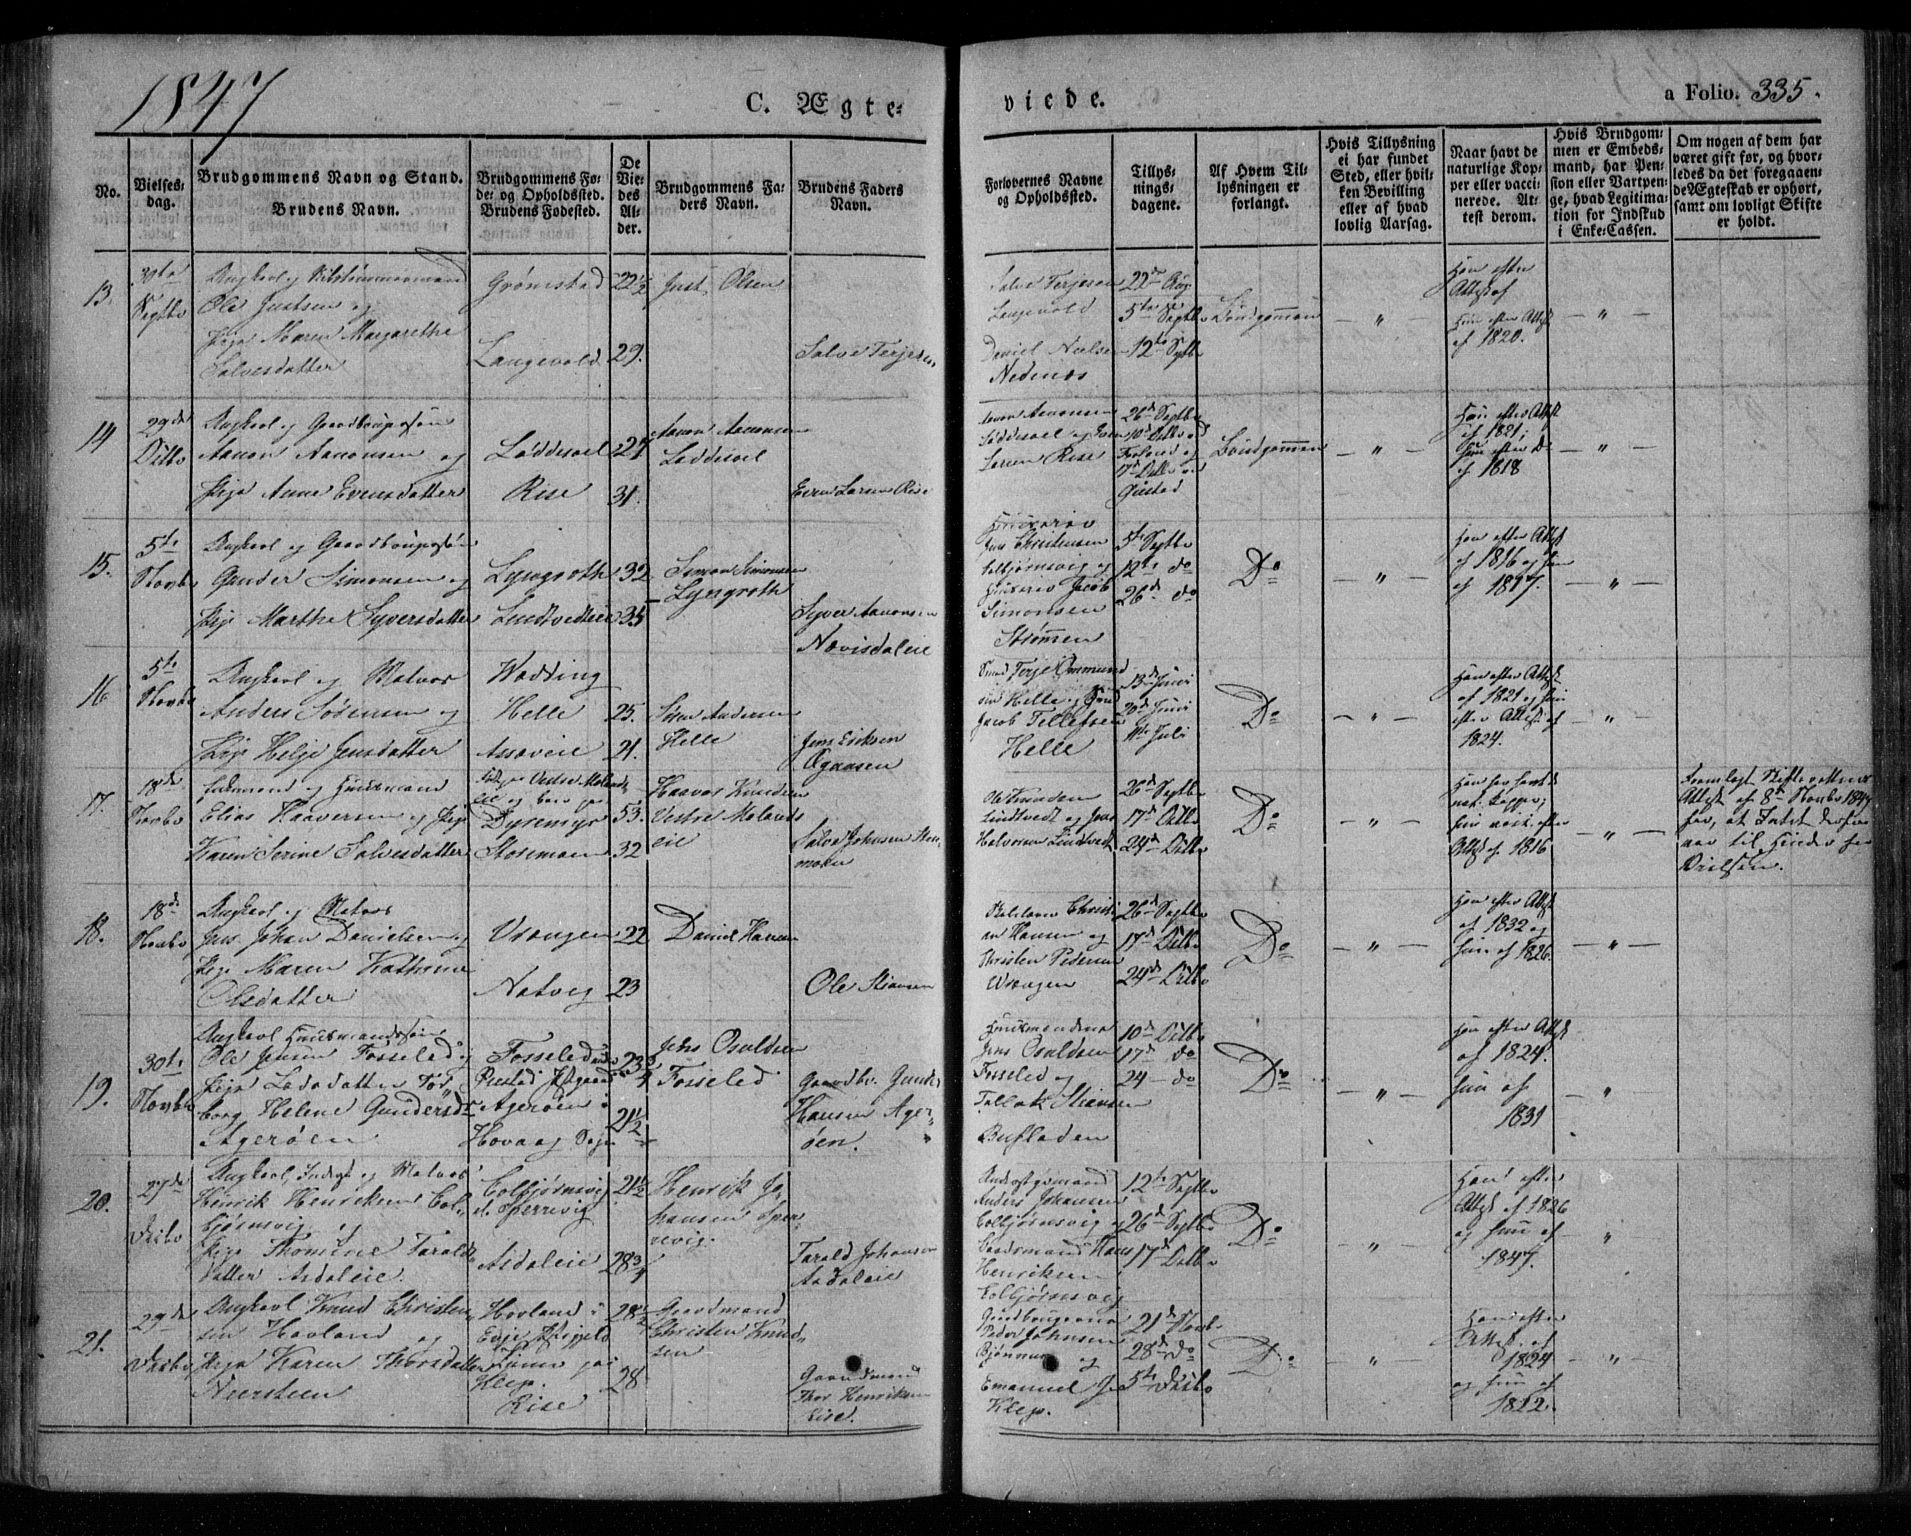 1847
C. Ægte-
viede.
a Folio. 335.
No.
Vielses-
dag.
Brudgommens Navn og Stand.
Brudens Navn.
Brudgommens Fø-
de- og Opholdssted.
Brudens Fødested.
De
Vie-
des
Al-
der.
Brudgommens Fa-
ders Navn.
Brudens Faders
Navn.
Forlovernes Navne
og Opholdssted.
Tillys-
nings-
dagene.
Af Hvem Til-
lysningen er
forlangt.
Hvis Tillysning
ei har fundet
Sted, eller hvil-
ken Bevilling
eller af hvad
lovlig Aarsag.
Naar havt de
naturlige Kop-
per eller vacci-
nerede. At-
test derom.
Hvis Brudgom-
men er Embeds-
mand, har Pen-
sion eller Vartpen-
ge, hvad Legitima-
tion for Indskud
i Enke-Cassen.
Om nogen af dem har
været gift før, og hvor-
ledes da det foregaaen-
de Ægteskab er ophørt,
samt om lovligt Skifte
er holdt.
13.
30te
Septbr
Ungkarl og
Ole Justsen og
Pige Maren Margarethe
Salvesdatter
Grømstad
Langevold
22½
29.
Just Olsen
Salve Terjesen
Salve Terjesen
Langevold
Daniel Nielsen
Nedenæs
22de Aug.
5te Septbr
12te Septbr
Brudgommen
Han efter
Attest af
Hun efter Attest
af 1820.
14
29de
Octbr
Ungkarl og Gaardbrugersøn
Aanon Aanonsen og
Pige Anne Evensdatter
Løddesoel
Rise
27
31.
Aanon Aanonsen
Løddesoel
Even Larsen Rise
Aanon Aanonsen
Løddesoel og Even
Larsen Rise
26de Septbr
10de Octbr
17de Octbr
Brudgommen
Han efter Attest
af 1821;
Hun efter Do
af 1818
15.
5te
Novbr
Ungkarl og Gaardbrugersøn
Gunder Simonsen og
Pige Marthe Syversdatter
Lyngroth
Lundtvedteie
32
35
Simon Simonsen
Lyngroth
Syver Aanonsen
Nævisdaleie
Jens Christensen
Colbjørnsvig og
Jacob
Simonsen
Strømmen
5te Septbr
12te do
26de do
Do
Han efter Attest
af 1816 og hun
af 1817.
16
5te
Novbr
Ungkarl og Matros
Anders Sørensen og
Pige Helje Jensdatter
Wadding
Helle
Assaveie
25.
21.
Søren Andersen
Helle
Jens Eriksen
Ogaasen
Terje Ommund-
sen Helle og
Jacob Tellefsen
Helle
13de Juni
20de Juni
11te Juli
Do
Han efter Attest
af 1821 og hun
efter Attest af
1824.
17.
18de
Novbr
Enkemand og Huusmand
Elias Haaversen og Pige
Karen Serine Salvesdatter
Dyremyr
Storemoen
53.
32
Haavor Knudsen
Vestre Molands-
eie
Salve Johnsen Stor-
moen
Ole Knudsen
Lundtvedt og Jens
Halvorsen Lundtvedt
26de Septbr
17de Octbr
24de Octbr
Do
Han har havt de
nat. Kopper;
hun vaks. efter
Attest af 1816
Fremlagt Skifterettens
Attest af 8de Novbr 1847
for, at Intet derfra
var til Hinder for
Vielsen.
18.
18de
Novbr
Ungkarl og Matros
Jens Johan Danielsen og
Pige Maren Kathrine
Olsdatter
Vrængen
Natvig
22
23
Daniel Hansen
Ole Stiansen
Christi-
an Hansen og
Christen Pedersen
Wrængen
26de Septbr
17de Octbr
24de Octbr
Do
Han efter Attest
af 1832 og
hun af 1826.
19.
30te
Novbr
Ungkarl Huusmandssøn
Ole Jensen Fosseled og
Pige Ladsdatter Tor-
borg Helene Gundersd.
Agerøen
Fosseled
Agerøen i
Hovaag Sogn
23¾
21½
Jens Osuldsen
Fosseled
Gaardbr. Gunder
Hansen Ager-
øen.
Huusmændene
Jens Osuldsen
Fosseled og
Tallak Stiansen
Bufladen
10de Octbr
17de do
24 do
Do
Han efter Attest
af 1824.
Hun af
1831
20.
27de
Decbr
Ungkarl, og Matros
Henrik Henriksen Col-
bjørnsvig og
Pige Thomine Taralds-
datter Asdaleie.
Colbjørnsvig
Sperrevig
Asdaleie
21½
28¾
Henrik Jo-
hansen Sper-
revig.
Tarald Johansen
Asdaleie
Anders Johansen
Colbjørnsvig og
Baadsmand Hans
Henriksen
Colbjørnsvig
12te Septbr
26de Septbr
17de Octbr
Do
Han efter
Attest af 1826
og hun af
1847.
21.
29de
Decbr
Ungkarl Knud Christen-
sen Hovland og
Pige Karen Thorsdatter
Neersteen
Hovland i
Evje
Klep.
Rise
28½
28
Gaardmand
Christen Knud-
sen
Gaardmand
Thor Henriksen
Rise.
Gaardbrugerne
Peder Johnsen
Bjønnum og
Emanuel
Klep.
21de Novbr
28de do
5te Decbr
Do
Han efter
Attest af
1824
og hun af
1822.